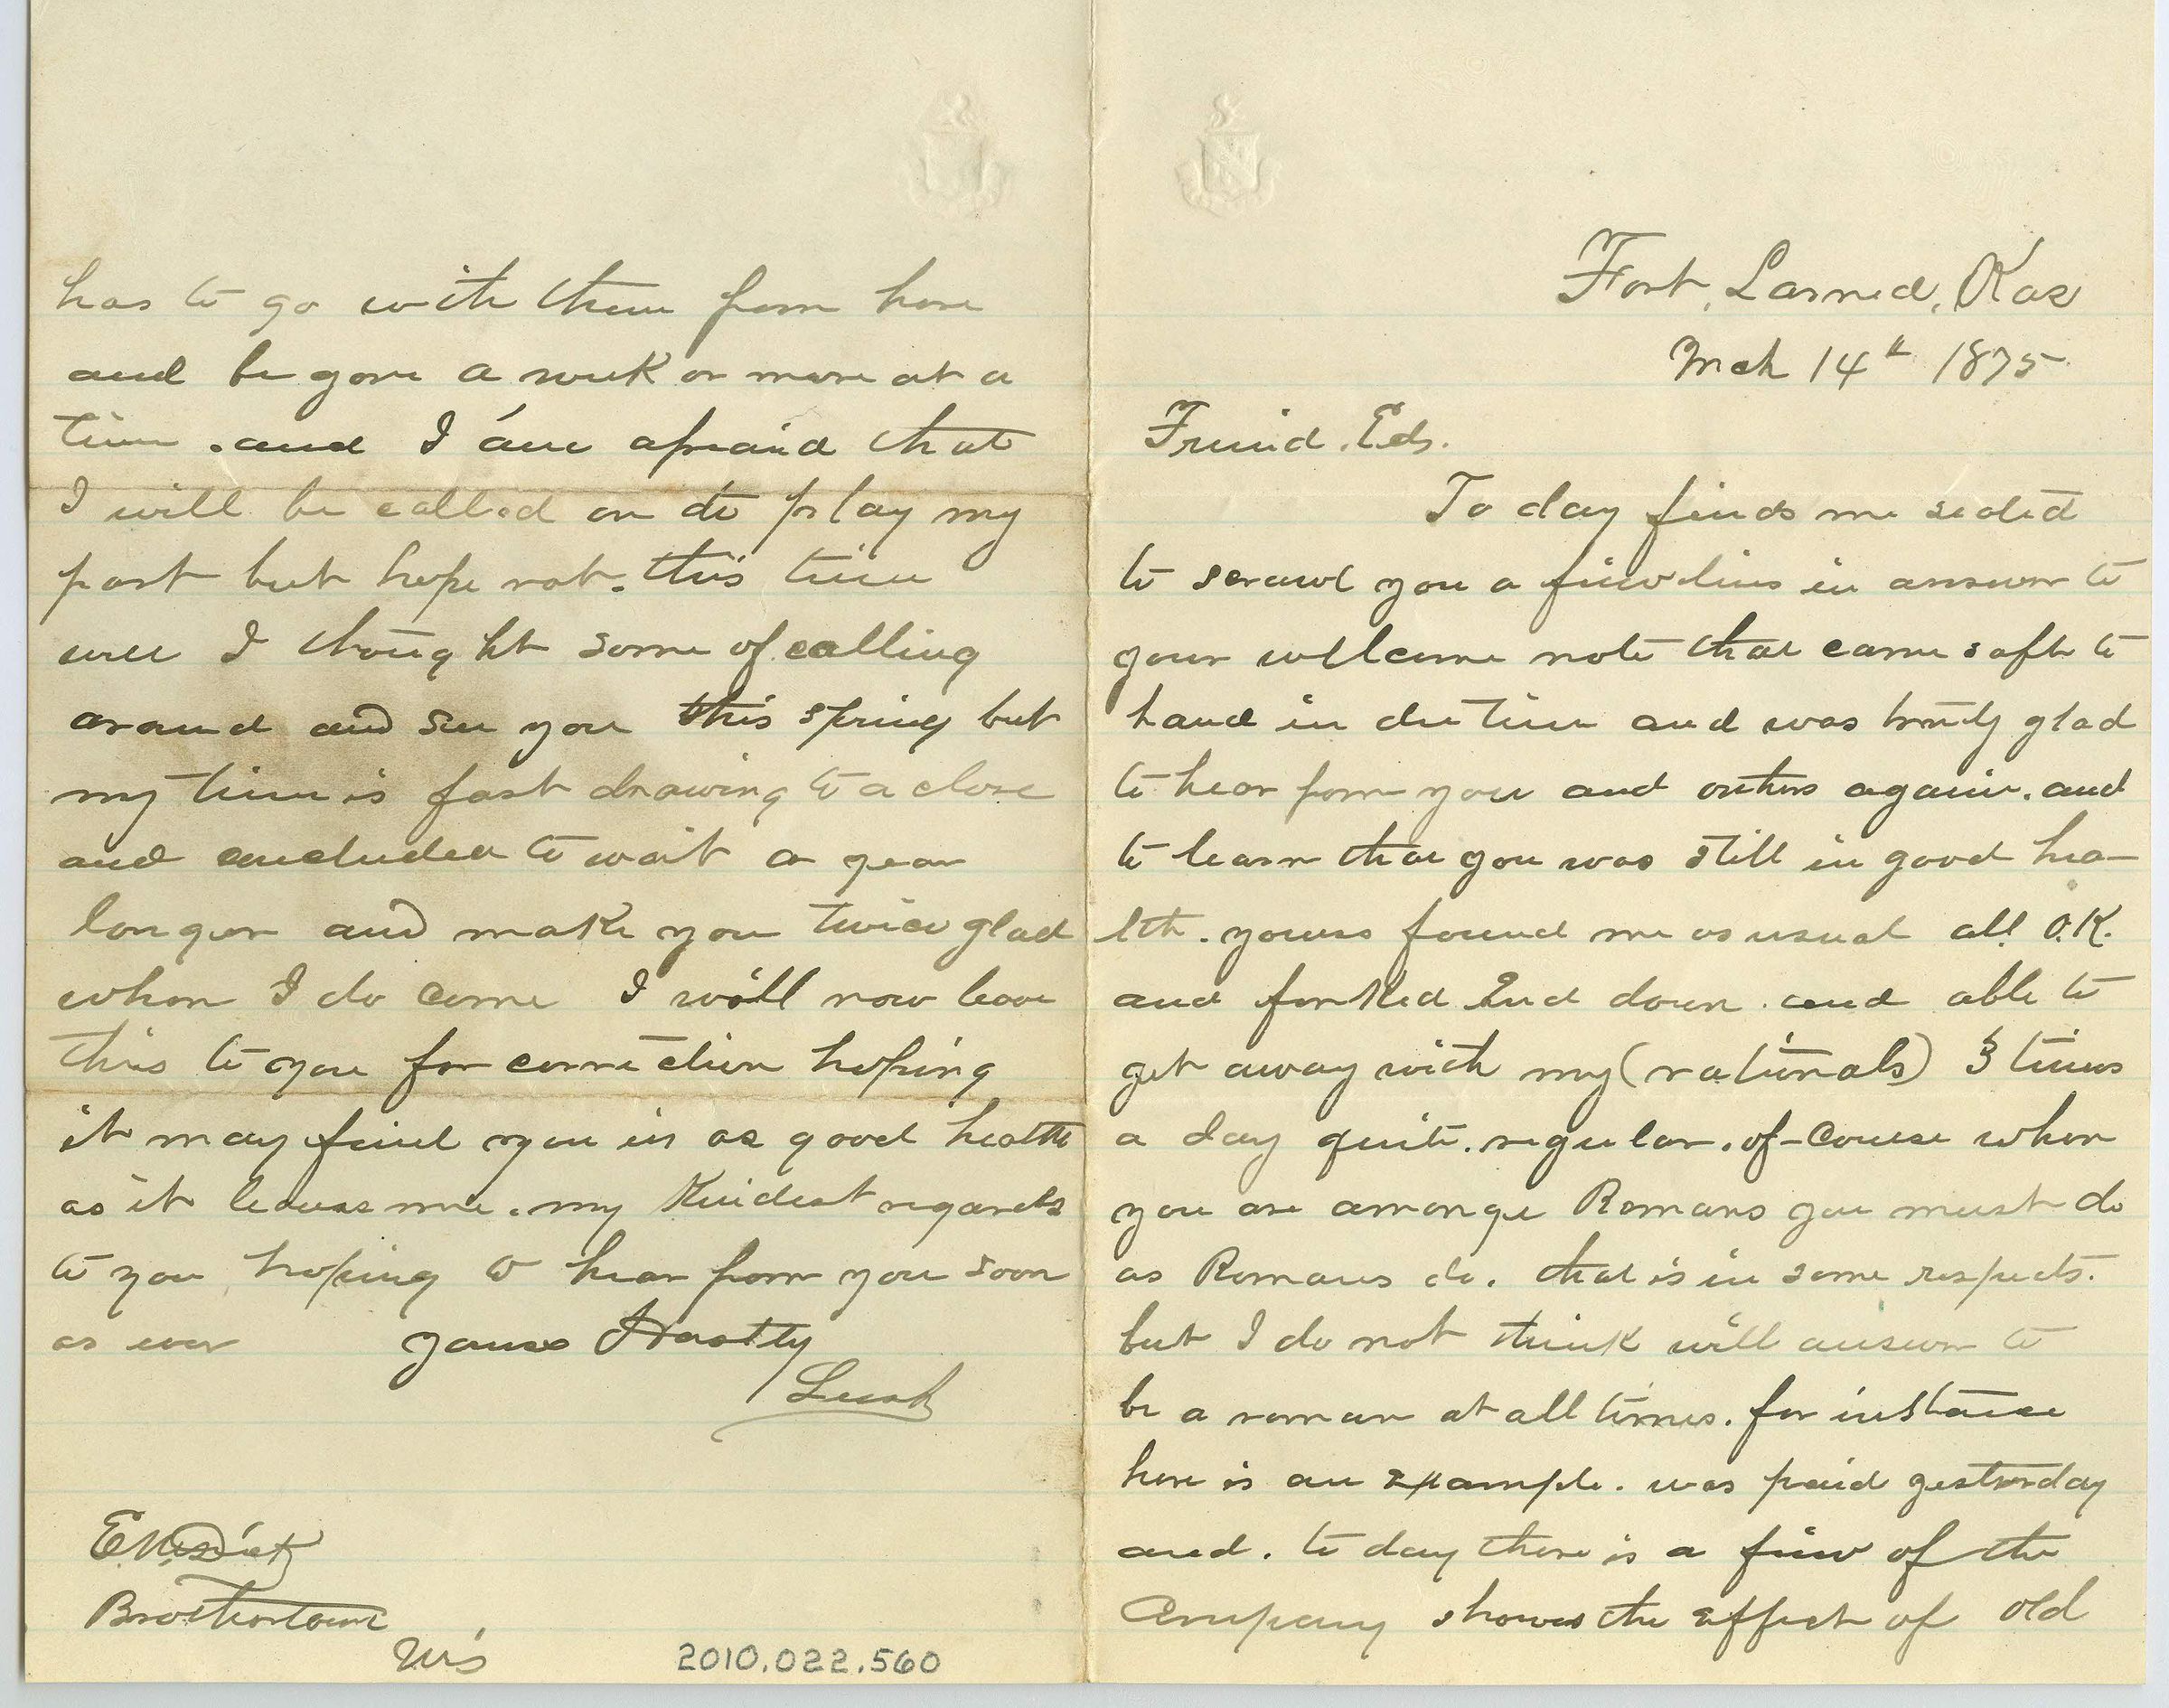 Fort, Larned, Kas
Mch 14th 1875
Friend. Eds.
To day finds me seated
to scrawl you a fiew lines in answer to
your wellcome note that came safe to
hand in due time and was truly glad
to hear from you and others again. and
to learn that you was still in good hea-
lth. yours found me as usual all O.K.
and forked End down. and able to
get away with my (rationals) 3 times
a day quite. regular. of-course when
you are amonge Romans you must do
as Romans do. that is in some respects.
but I do not think will answer to
be a roman at all times. for instance
here is an example. was paid yesterday
and. to day there is a fiew of the
Company shows the effect of old
has to go with them from here
and be gone a week or more at a
time. and I am afraid that
I will be called on to play my
part but hope not. this time
well I thought some of calling
around and see you this spring but
my time is fast drawing to a close
and concluded to wait a year
longer and make you twice glad
when I do come I will now leave
this to you for correction hoping
it may find you in as good health
as it leaves me. my Kindest regards
to you, hoping to hear from you soon
as ever yours Hastly
Lush
Brothertown
Wis
2010.022.560